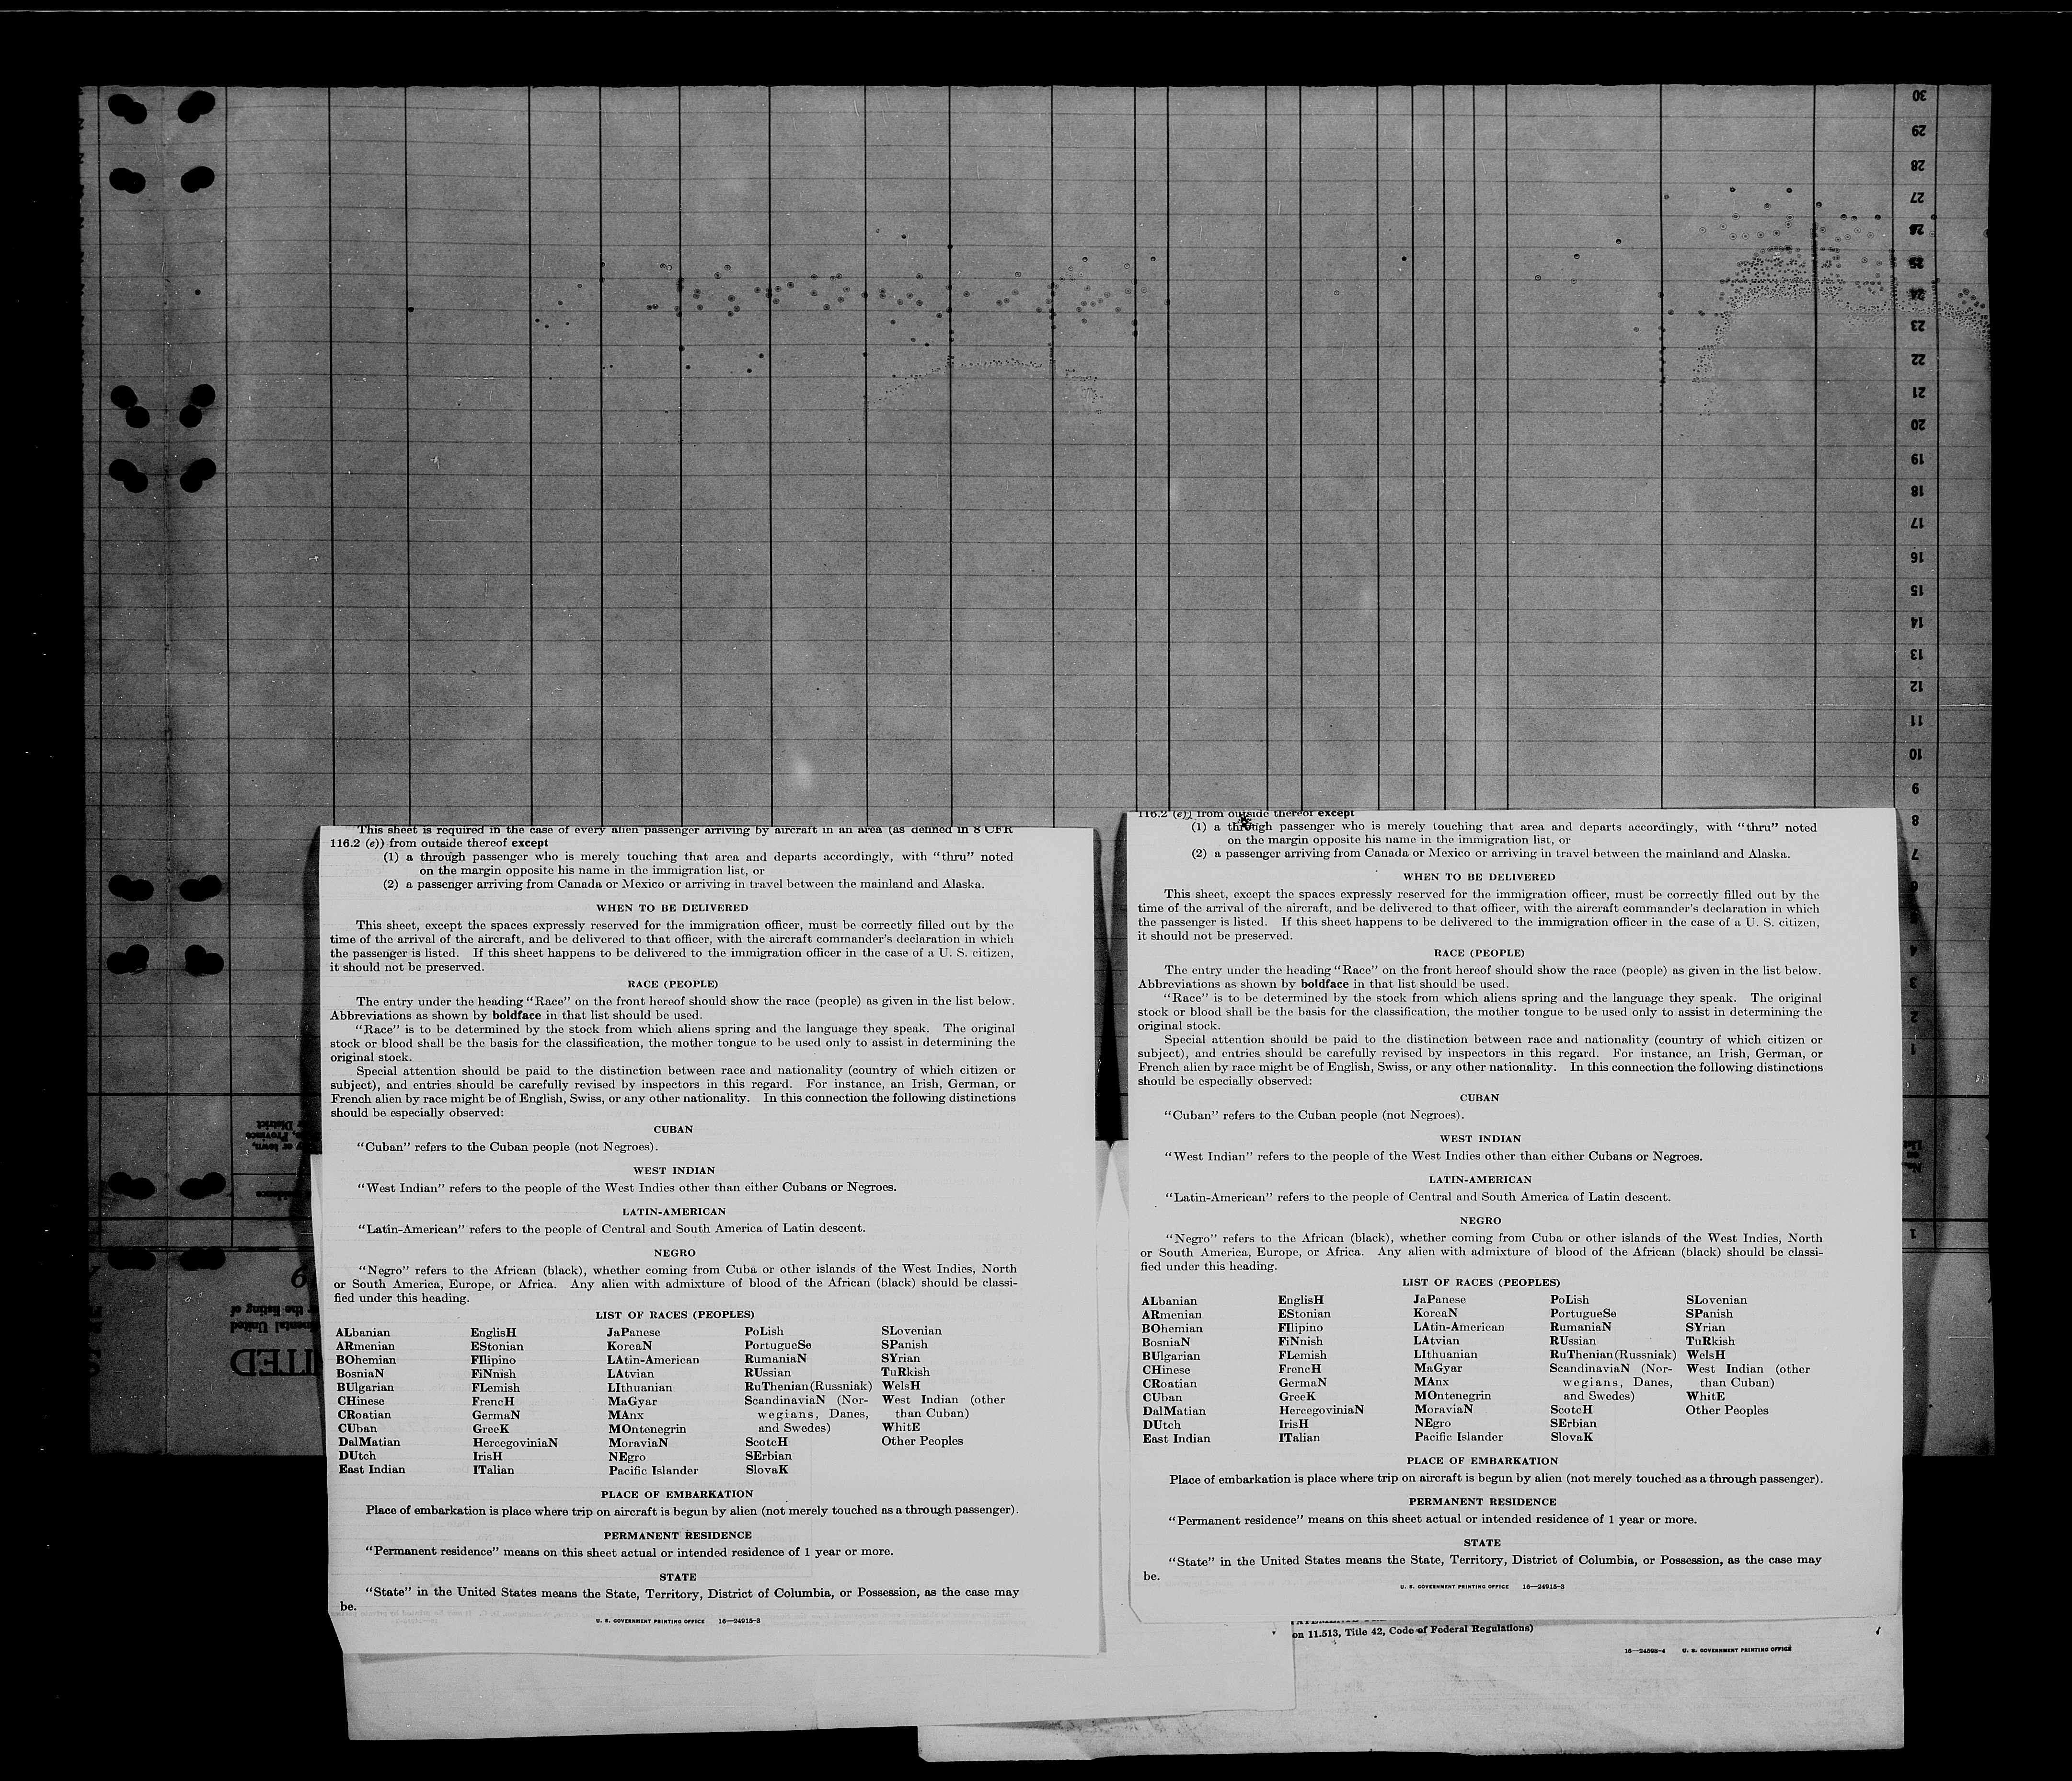 30
29
28
27
26
25
24
23
22
21
20
19
18
17
16
15
14
13
12
11
10
9
8
7
6
5
4
3
2
1
This sheet is required in the case of every alien passenger arriving by aircraft in an area (as defined in 8 CFR
116.2 (e)) from outside thereof except
(1) a through passenger who is merely touching that area and departs accordingly, with “thru” noted
on the margin opposite his name in the immigration list, or
(2) a passenger arriving from Canada or Mexico or arriving in travel between the mainland and Alaska.
WHEN TO BE DELIVERED
This sheet, except the spaces expressly reserved for the immigration officer, must be correctly filled out by the
time of the arrival of the aircraft, and be delivered to that officer, with the aircraft commander’s declaration in which
the passenger is listed. If this sheet happens to be delivered to the immigration officer in the case of a U. S. citizen,
it should not be preserved.
RACE (PEOPLE)
The entry under the heading “Race” on the front hereof should show the race (people) as given in the list below.
Abbreviations as shown by boldface in that list should be used.
“Race” is to be determined by the stock from which aliens spring and the language they speak. The original
stock or blood shall be the basis for the classification, the mother tongue to be used only to assist in determining the
original stock.
Special attention should be paid to the distinction between race and nationality (country of which citizen or
subject), and entries should be carefully revised by inspectors in this regard. For instance, an Irish, German, or
French alien by race might be of English, Swiss, or any other nationality. In this connection the following distinctions
should be especially observed:
CUBAN
“Cuban” refers to the Cuban people (not Negroes).
WEST INDIAN
“West Indian” refers to the people of the West Indies other than either Cubans or Negroes.
LATIN-AMERICAN
“Latin-American” refers to the people of Central and South America of Latin descent.
NEGRO
“Negro” refers to the African (black), whether coming from Cuba or other islands of the West Indies, North
or South America, Europe, or Africa. Any alien with admixture of blood of the African (black) should be classi-
fied under this heading.
LIST OF RACES (PEOPLES)
ALbanian EnglisH JaPanese PoLish SLovenian
ARmenian EStonian KoreaN PortugueSe SPanish
BOhemian FIlipino LAtin-American RumaniaN SYrian
BosniaN FiNnish LAtvian RUssian TuRkish
BUlgarian FLemish LIthuanian RuThenian (Russniak) WelsH
CHinese FrencH MaGyar ScandinaviaN (Nor- West Indian (other
CRoatian GermaN MAnx wegians, Danes, than Cuban)
CUban GreeK MOntenegrin and Swedes) WhitE
DalMatian HercegoviniaN MoraviaN ScotcH Other Peoples
DUtch IrisH NEgro SErbian
East Indian ITalian Pacific Islander SlovaK
PLACE OF EMBARKATION
Place of embarkation is place where trip on aircraft is begun by alien (not merely touched as a through passenger).
PERMANENT RESIDENCE
“Permanent residence” means on this sheet actual or intended residence of 1 year or more.
STATE
“State” in the United States means the State, Territory, District of Columbia, or Possession, as the case may
be.
U. S. GOVERNMENT PRINTING OFFICE 16—24915-3
116.2 (e)) from outside thereof except
(1) a through passenger who is merely touching that area and departs accordingly, with “thru” noted
on the margin opposite his name in the immigration list, or
(2) a passenger arriving from Canada or Mexico or arriving in travel between the mainland and Alaska.
WHEN TO BE DELIVERED
This sheet, except the spaces expressly reserved for the immigration officer, must be correctly filled out by the
time of the arrival of the aircraft, and be delivered to that officer, with the aircraft commander’s declaration in which
the passenger is listed. If this sheet happens to be delivered to the immigration officer in the case of a U. S. citizen,
it should not be preserved.
RACE (PEOPLE)
The entry under the heading “Race” on the front hereof should show the race (people) as given in the list below.
Abbreviations as shown by boldface in that list should be used.
“Race” is to be determined by the stock from which aliens spring and the language they speak. The original
stock or blood shall be the basis for the classification, the mother tongue to be used only to assist in determining the
original stock.
Special attention should be paid to the distinction between race and nationality (country of which citizen or
subject), and entries should be carefully revised by inspectors in this regard. For instance, an Irish, German, or
French alien by race might be of English, Swiss, or any other nationality. In this connection the following distinctions
should be especially observed:
CUBAN
“Cuban” refers to the Cuban people (not Negroes).
WEST INDIAN
“West Indian” refers to the people of the West Indies other than either Cubans or Negroes.
LATIN-AMERICAN
“Latin-American” refers to the people of Central and South America of Latin descent.
NEGRO
“Negro” refers to the African (black), whether coming from Cuba or other islands of the West Indies, North
or South America, Europe, or Africa. Any alien with admixture of blood of the African (black) should be classi-
fied under this heading.
LIST OF RACES (PEOPLES)
ALbanian EnglisH JaPanese PoLish SLovenian
ARmenian EStonian KoreaN PortugueSe SPanish
BOhemian FIlipino LAtin-American RumaniaN SYrian
BosniaN FiNnish LAtvian RUssian TuRkish
BUlgarian FLemish LIthuanian RuThenian (Russniak) WelsH
CHinese FrencH MaGyar ScandinaviaN (Nor- West Indian (other
CRoatian GermaN MAnx wegians, Danes, than Cuban)
CUban GreeK MOntenegrin and Swedes) WhitE
DalMatian HercegoviniaN MoraviaN ScotcH Other Peoples
DUtch IrisH NEgro SErbian
East Indian ITalian Pacific Islander SlovaK
PLACE OF EMBARKATION
Place of embarkation is place where trip on aircraft is begun by alien (not merely touched as a through passenger).
PERMANENT RESIDENCE
“Permanent residence” means on this sheet actual or intended residence of 1 year or more.
STATE
“State” in the United States means the State, Territory, District of Columbia, or Possession, as the case may
be.
U. S. GOVERNMENT PRINTING OFFICE 16—24915-3
on 11.513, Title 42, Code of Federal Regulations)
16—24598-4 U. S. GOVERNMENT PRINTING OFFICE